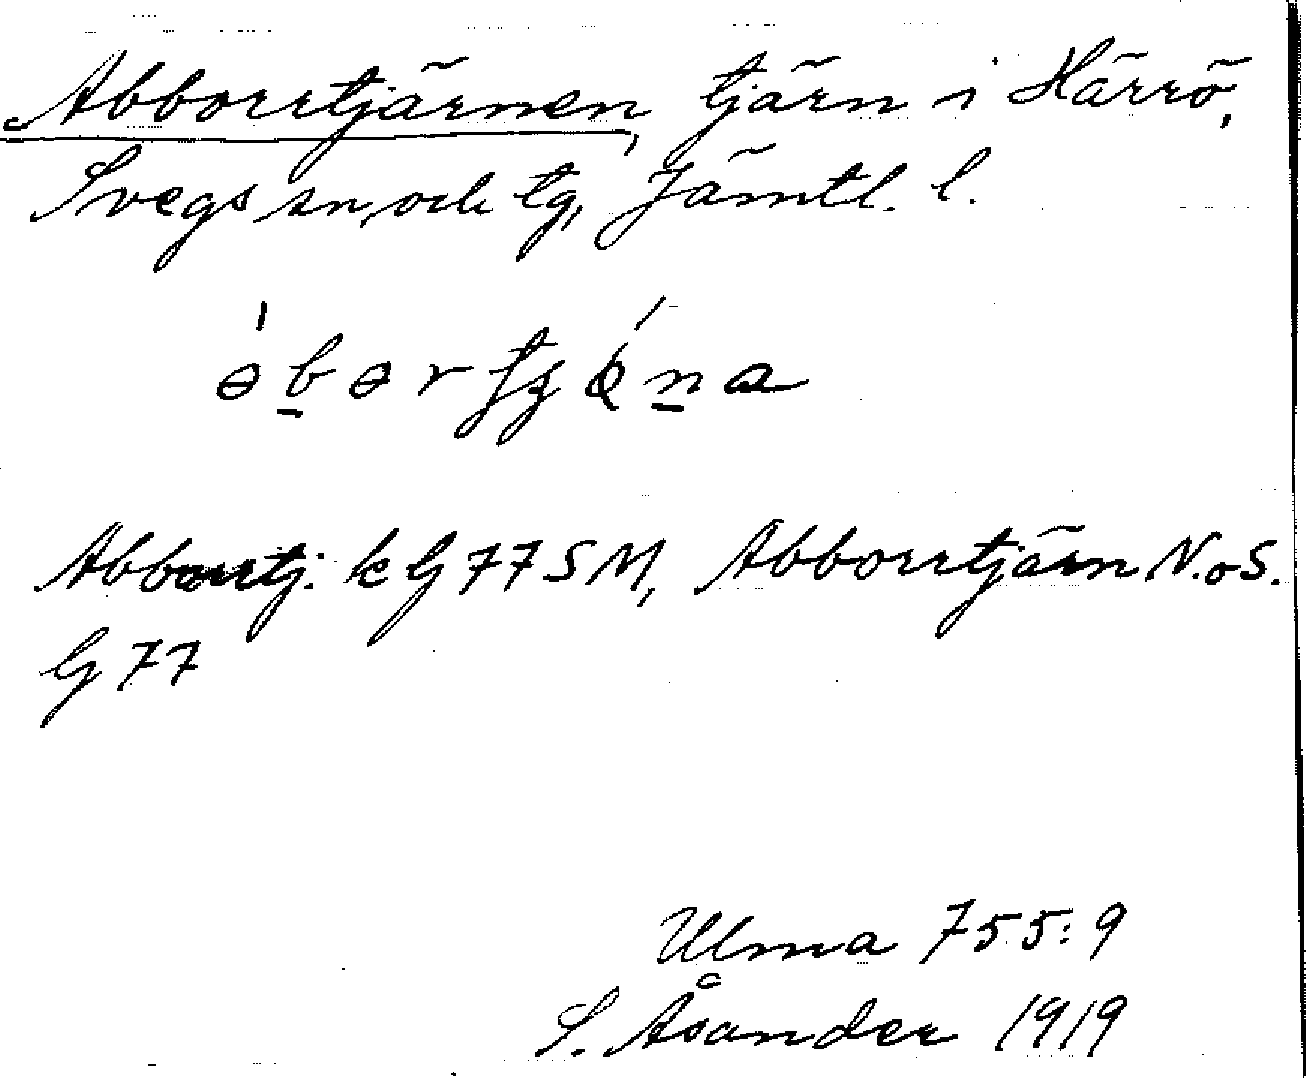 Abborrtjärnen, tjärn i Härrö,
Svegs sn, och tg, Jämtl. l.
Abborrtj. k G 77 SM, Abborrtjärn N.o S.
G 77
Ulma 755:9
S. Åsander 1919